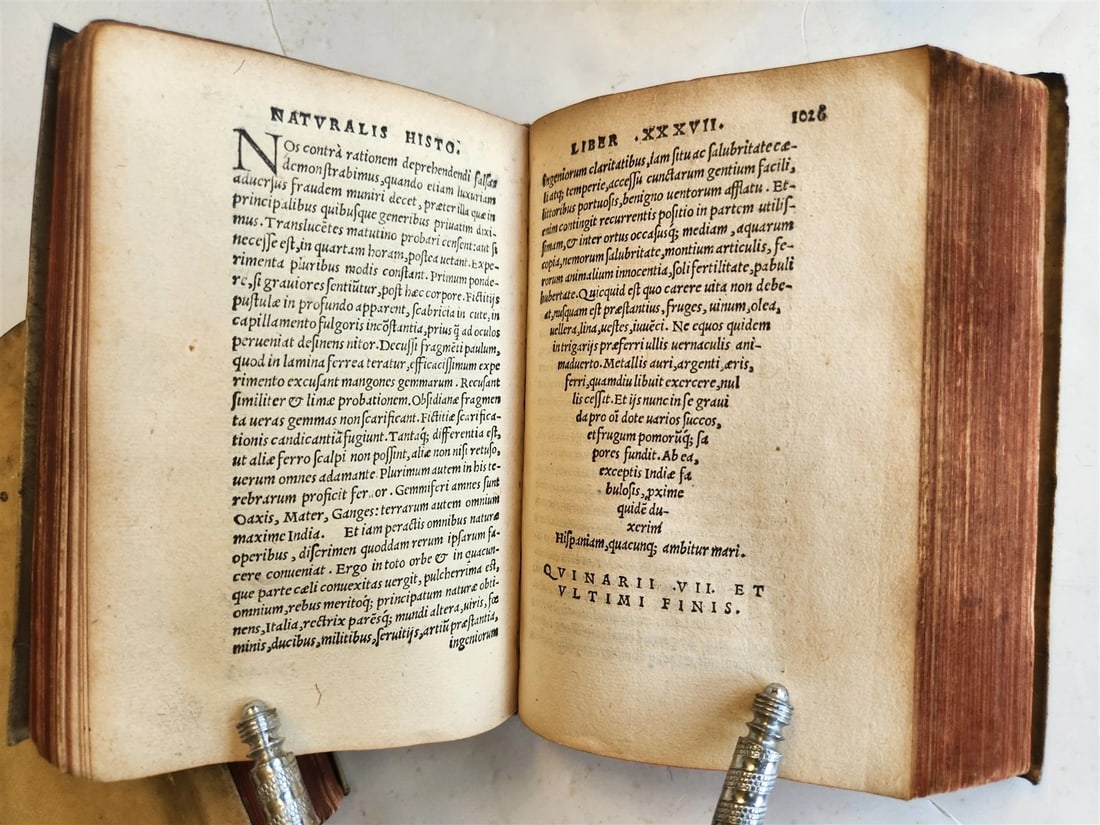 NATVRALIS HISTO.
NOs contrà rationem deprehendendi falsas
demonstrabimus, quando etiam luxuriam
aduersus fraudem muniri decet, præter illa quæ in
principalibus quibusque generibus priuatim dixi-
mus. Translucẽtes matutino probari censent: aut si
necesse est, in quartam horam, postea uetant. Expe-
rimenta pluribus modis constant. Primum ponde-
re, si grauiores sentiũtur, post hæc corpore. Fictitijs
pustulæ in profundo apparent, scabricia in cute, in
capillamento fulgoris incõstantia, prius q̃ ad oculos
perueniat desinens nitor. Decussi fragmẽti paulum,
quod in lamina ferrea teratur, efficacissimum expe
rimento excusant mangones gemmarum. Recusant
similiter & limæ probationem. Obsidianæ fragmen
ta ueras gemmas non scarificant. Fictitiæ scarifica-
tionis candicantiã fugiunt. Tantaq; differentia est,
ut aliæ ferro scalpi non possint, aliæ non nisi retuso,
uerum omnes adamante. Plurimum autem in his te-
rebrarum proficit fer or. Gemmiferi amnes sunt
Oaxis, Mater, Ganges: terrarum autem omnium
maxime India. Et iam peractis omnibus naturæ
operibus, discrimen quoddam rerum ipsarum fa-
cere conueniat. Ergo in toto orbe & in quacun-
que parte cæli conuexitas uergit, pulcherrima est,
omnium, rebus meritoq; principatum naturæ obti-
nens, Italia, rectrix parẽsq; mundi altera, uiris, fœ
minis, ducibus, militibus, seruitijs, artiũ præstantia,
ingeniorum
LIBER .XXXVII. 1028
ingeniorum claritatibus, iam situ ac salubritate cæ-
li atq; temperie, accessu cunctarum gentium facili,
littoribus portuosis, benigno uentorum afflatu. Et-
enim contingit recurrentis positio in partem utilis-
simam, & inter ortus occasusq; mediam, aquarum
copia, nemorum salubritate, montium articulis, fe-
rorum animalium innocentia, soli fertilitate, pabuli
hubertate. Quicquid est quo carere uita non debe-
at, nusquam est præstantius, fruges, uinum, olea,
uellera, lina, uestes, iuuẽci. Ne equos quidem
in trigarijs præferri ullis uernaculis ani-
maduerto. Metallis auri, argenti, æris,
ferri, quamdiu libuit exercere, nul
lis cessit. Et ijs nunc in se graui
da pro oĩ dote uarios succos,
et frugum pomorũq; sa
pores fundit. Ab ea,
exceptis Indiæ fa
bulosis, ꝓxime
quidẽ du-
xerim
Hispaniam, quacunq; ambitur mari.
QVINARII .VII. ET
VLTIMI FINIS.